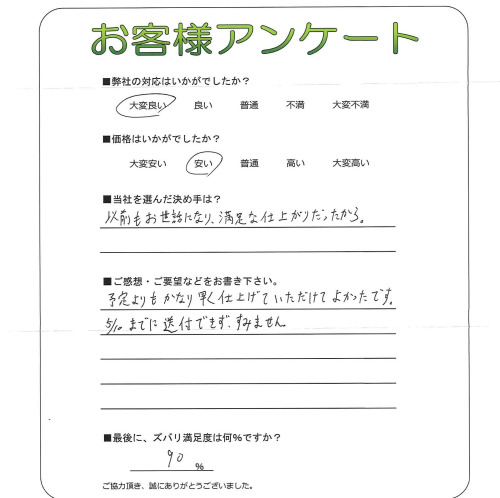 お客様アンケート
■弊社の対応はいかがでしたか？
大変良い 良い 普通 不満 大変不満
■価格はいかがでしたか？
大変安い 安い 普通 高い 大変高い
■当社を選んだ決め手は？
以前もお世話になり、満足な仕上がりだったから。
■ご感想・ご要望などをお書き下さい。
予定よりもかなり早く仕上げていただけてよかったです。
5/10までに送付できず、すみません。
■最後に、ズバリ満足度は何%ですか？
90 %
ご協力頂き、誠にありがとうございました。